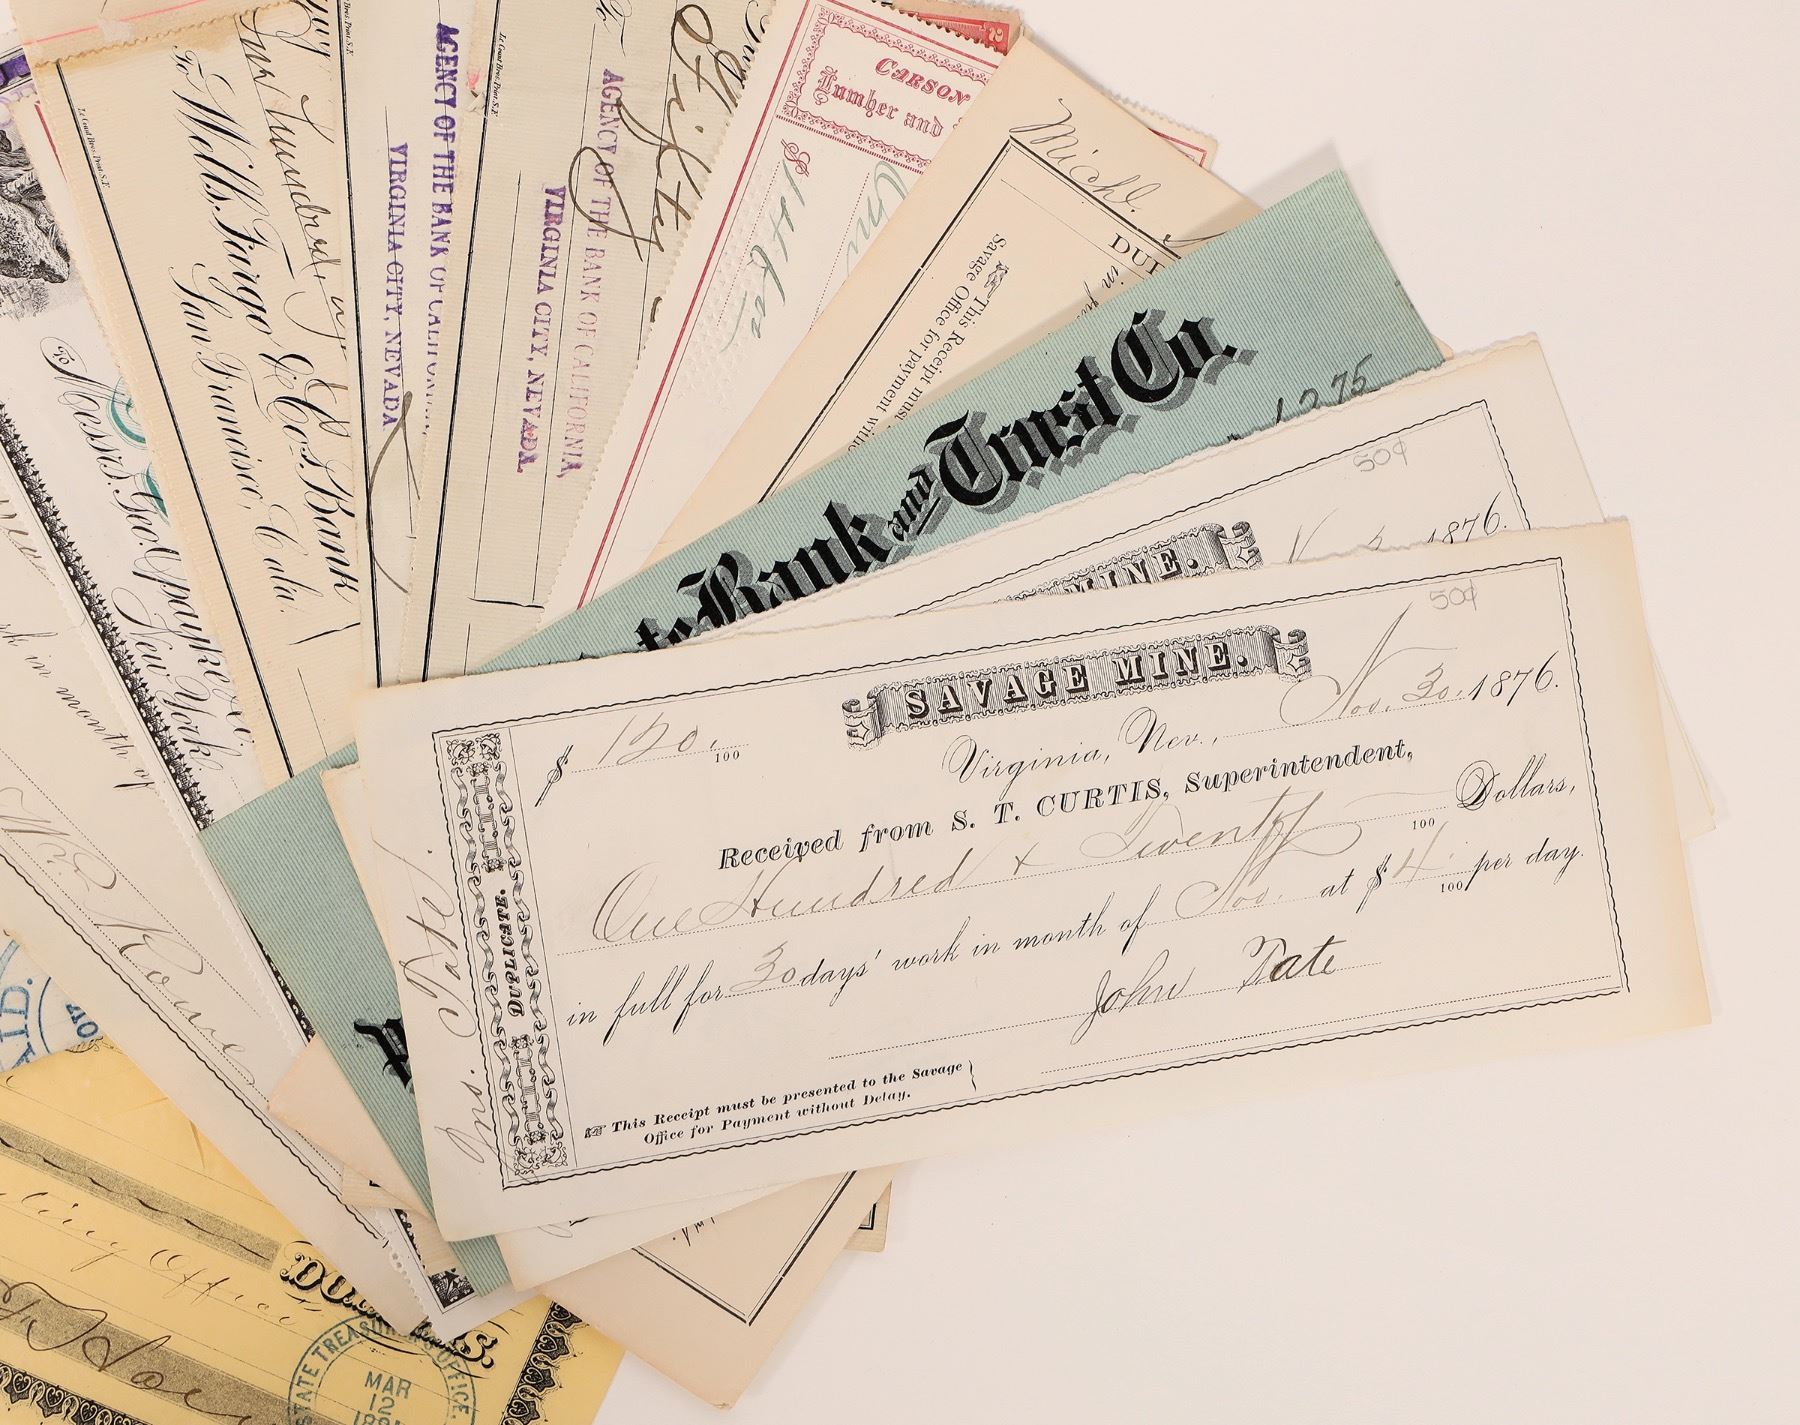 Le Count Bros. Print. S.F.
To Wells, Fargo & Co's. Bank
San Francisco, Cala.
AGENCY OF THE BANK OF CALIFORNIA,
VIRGINIA CITY, NEVADA
Le Count Bros. Print. S.F.
AGENCY OF THE BANK OF CALIFORNIA,
VIRGINIA CITY, NEVADA.
Sixty
CARSON
Lumber and
$
Michl.
DUPL
This Receipt must
Savage Office for payment witho
Bank and Trust Co.
1275
50¢
MINE.
1876.
To Messrs. Geo. Opdyke & Co.
New York
rk in month of
Rowe
50¢
SAVAGE MINE.
$ 120. 100
Virginia, Nev., Nov. 30. 1876.
Received from S. T. CURTIS, Superintendent,
One Hundred & Twenty 100 Dollars,
in full for 30 days' work in month of Nov. at $ 4 100 per day.
John Tate
This Receipt must be presented to the Savage
Office for Payment without Delay.
DUPLICATE.
Jno. Tate.
AID.
NOV
Office
DOLLARS.
STATE TREASURER'S OFFICE.
MAR
12